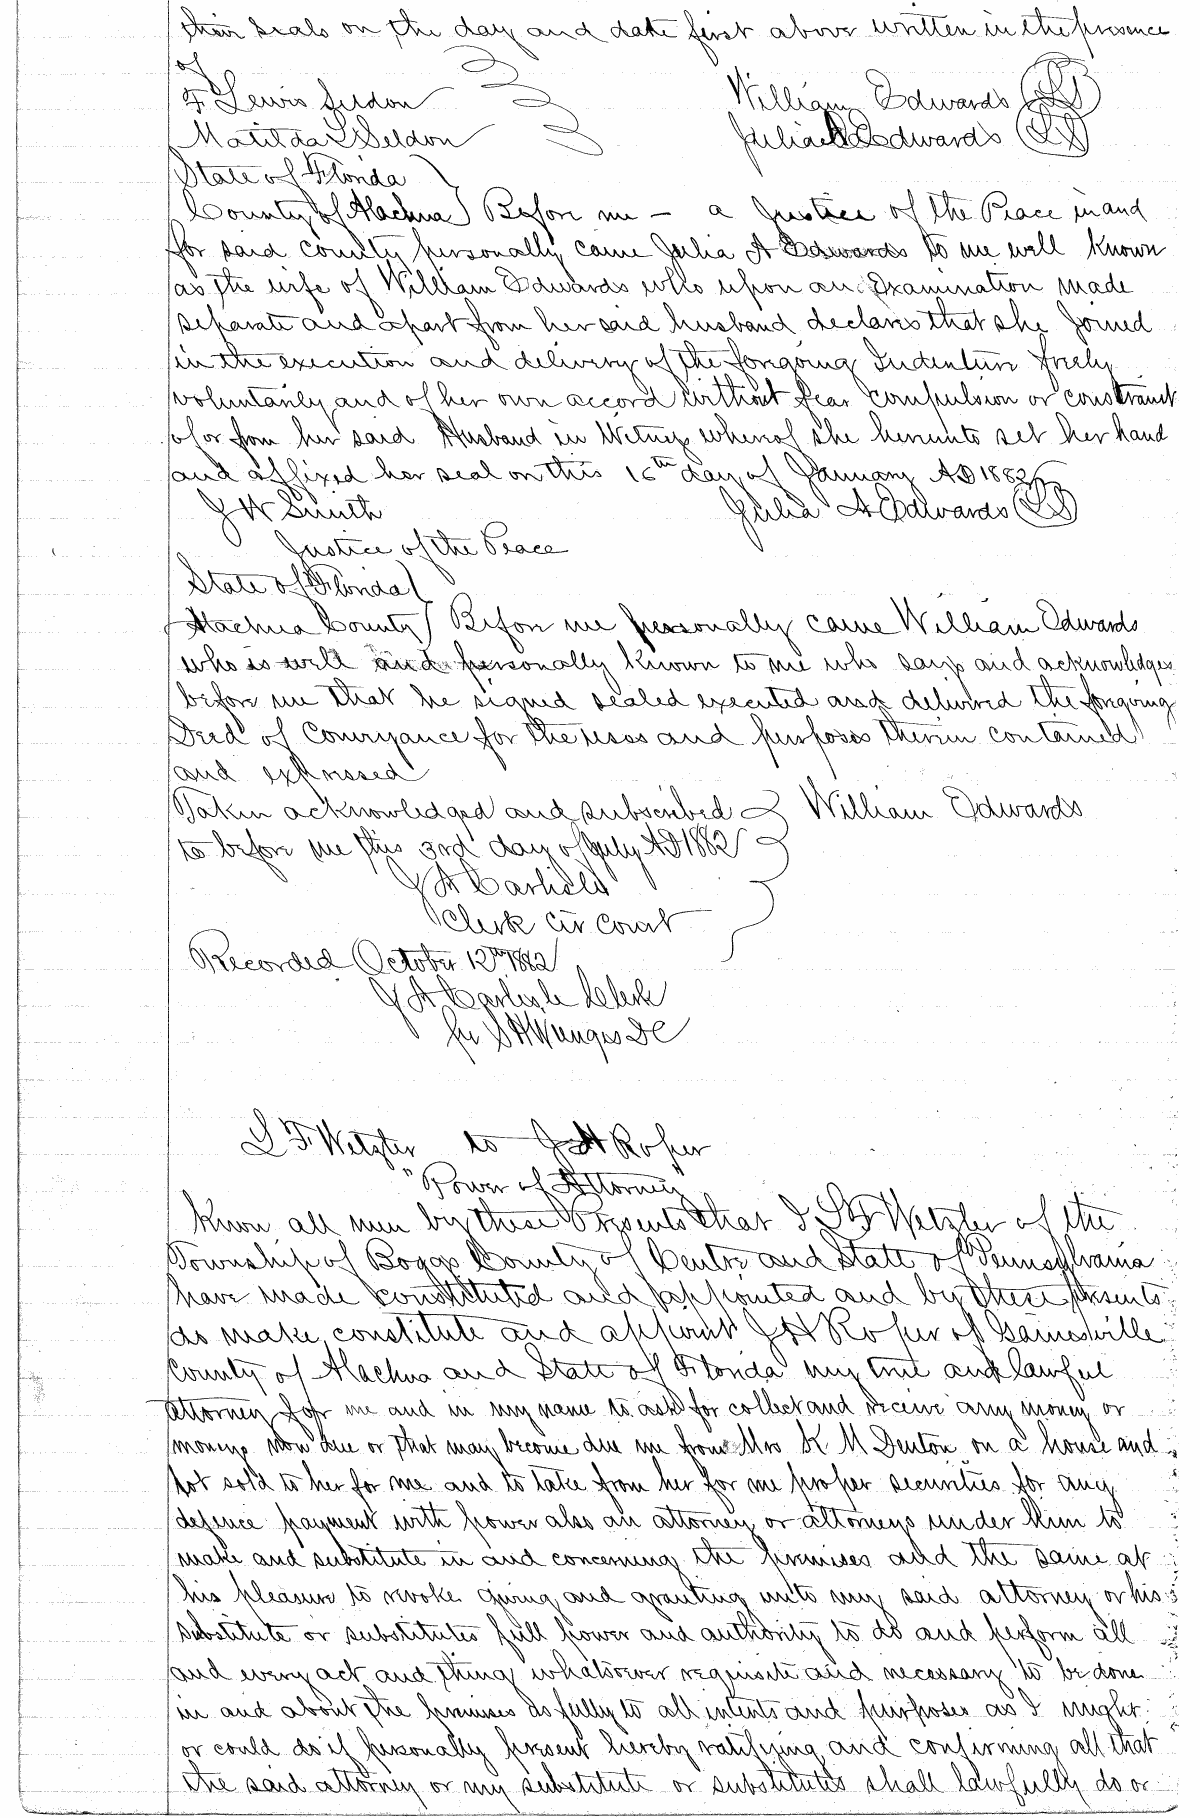 their seals on the day and date first above written in the presence
of
F Lewis Seldon William Edwards LS
Matilda L Seldon Julia A Edwards LS
State of Florida
County of Alachua Before me - a Justice of the Peace in and
for said county personally came Julia A Edwards to me well known
as the wife of William Edwards who upon an Examination made
separate and apart from her said husband declares that she Joined
in the execution and delivery of the forgoing Indenture freely
voluntarily and of her own accord without fear compulsion or constraint
of or from her said Husband in Witness whereof she hereunto set her hand
and affixed her seal on this 16th day of January AD 1882
J W Smith Julia A Edwards LS
Justice of the Peace
State of Florida
Alachua County Before me personally came William Edwards
who is well and personally known to me who says and acknowledges
before me that he signed sealed executed and delivered the forgoing
Deed of Conveyance for the uses and purposes therein contained
and expressed
Taken acknowledged and subscribed William Edwards
to before me this 3rd day of July AD 1882
J A Carlisle
Clerk Cir Court
Recorded October 12th 1882
J A Carlisle Clerk
per S H DC
S F Wetzler to J H Roper
"Power of Attorney"
Know all men by these Presents that I S F Wetzler of the
Township of Boggs County of Centre and State of Pennsylvania
have made constituted and appointed and by these presents
do make constitute and appoint J H Roper of Gainesville
County of Alachua and State of Florida my true and lawful
attorney for me and in my name to ask for collect and receive any money or
moneys now due or that may become due me from Mrs K M Denton on a house and
lot sold to her for me and to take from her for me proper securities for any
defence payment with power also an attorney or attorneys under him to
make and substitute in and concerning the premises and the same at
his pleasure to revoke giving and granting unto my said attorney or his
substitute or substitutes full power and authority to do and perform all
and every act and thing whatsoever requisite and necessary to be done
in and about the premises as fully to all intents and purposes as I might
or could do if personally present hereby ratifying and confirming all that
the said attorney or my substitute or substitutes shall lawfully do or